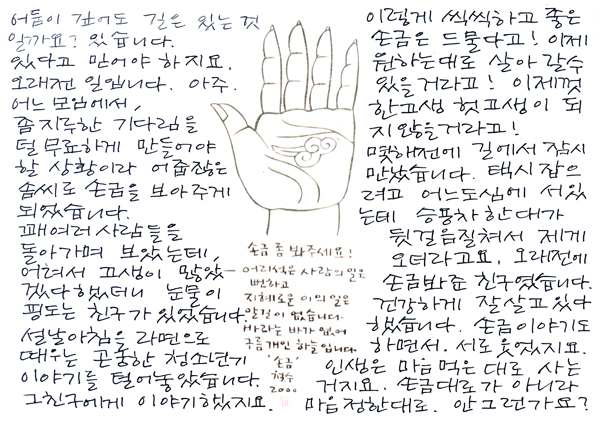 어둠이 깊어도 길은 있는 것
일까요? 있습니다.
있다고 믿어야 하지요.
오래전 일입니다. 아주.
어느 모임에서,
좀 지루한 기다림을
덜 무료하게 만들어야
할 상황이라 어줍잖은
솜씨로 손금을 보아주게
되었습니다.
꽤여러 사람들을
돌아가며 보았는데,
어려서 고생이 많았
겠다 했더니 눈물이
핑도는 친구가 있었습니다.
설날아침을 라면으로
때우는 곤궁한 청소년기
이야기를 털어놓았습니다.
그친구에게 이야기했지요.
이렇게 씩씩하고 좋은
손금은 드물다고! 이제
원하는대로 살아 갈수
있을거라고! 이제껏
한고생 헛고생이 되
지 않을거라고!
몇해전에 길에서 잠시
만났습니다. 택시 잡으
려고 어느도심에 서있
는데 승용차 한대가
뒷걸음질쳐서 제게
오더라고요. 오래전에
손금봐준 친구였습니다.
건강하게 잘살고 있다
했습니다. 손금이야기도
하면서, 서로 웃었지요.
인생은 마음 먹은 대로 사는
거지요. 손금대로가 아니라
마음 정한대로. 안그런가요?
손금 좀 봐주세요!
어리석은 사람의 일은
뻔하고
지혜로운 이의 일은
알길이 없습니다
바라는 바가 없어
구름 개인 하늘입니다
'손금'
철수
2000